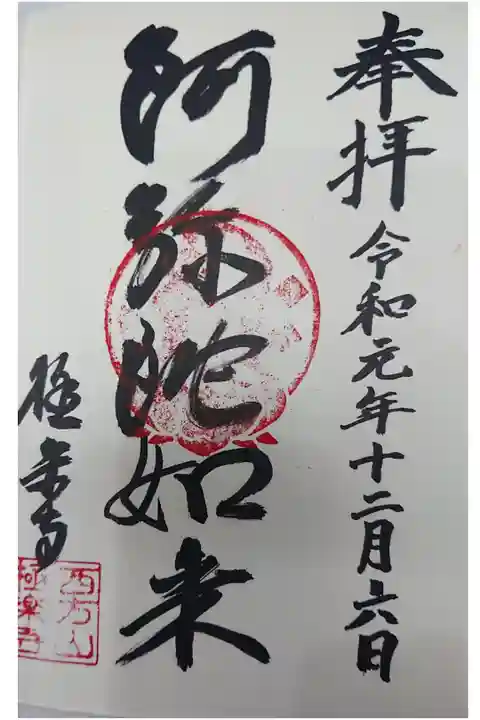 奉拝 令和元年十二月六日
阿弥陀如来
極楽寺
西方山
極楽寺